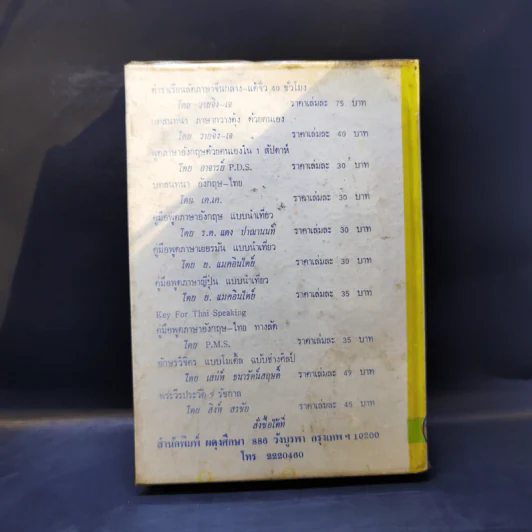 ตำราเรียนลัดภาษาจีนกลาง-แต้จิ๋ว 49 ชั่วโมง
โดย วายจิง-เจ ราคาเล่มละ 75 บาท
บทสนทนา ภาษากวางตุ้ง ด้วยตนเอง
โดย วายจิง-เจ ราคาเล่มละ 40 บาท
พูดภาษาอังกฤษด้วยตนเองใน 1 สัปดาห์
โดย อาจารย์ P.D.S. ราคาเล่มละ 30 บาท
บทสนทนา อังกฤษ-ไทย
โดย เค.เค. ราคาเล่มละ 30 บาท
คู่มือพูดภาษาอังกฤษ แบบนำเที่ยว
โดย ร.ต. แดง ปาณานนท์ ราคาเล่มละ 30 บาท
คู่มือพูดภาษาเยอรมัน แบบนำเที่ยว
โดย ย. แมคอินไตย์ ราคาเล่มละ 30 บาท
คู่มือพูดภาษาญี่ปุ่น แบบนำเที่ยว
โดย ย. แมคอินไตย์ ราคาเล่มละ 35 บาท
Key For Thai Speaking
คู่มือพูดภาษาอังกฤษ-ไทย ทางลัด
โดย P.M.S. ราคาเล่มละ 35 บาท
อักษรวิจิตร แบบโมเด็ล ฉบับช่างศิลป์
โดย เสน่ห์ ธนารัตน์สฤษดิ์ ราคาเล่มละ 49 บาท
พระวีรประวัติ ๙ รัชกาล
โดย สิงห์ ราคาเล่มละ 45 บาท
สั่งซื้อได้ที่
สำนักพิมพ์ ผดุงศึกษา 886 วังบูรพา กรุงเทพ ฯ 10200
โทร 2220460